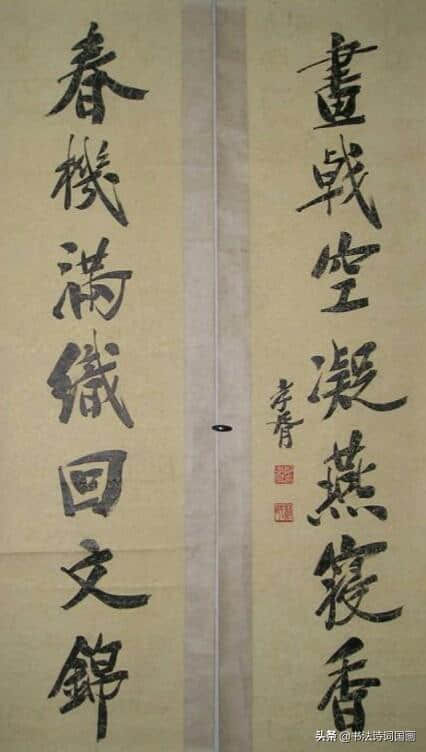 春機滿織回文錦
畫戟空凝燕寢香
孝胥
头条 @书法诗词国画